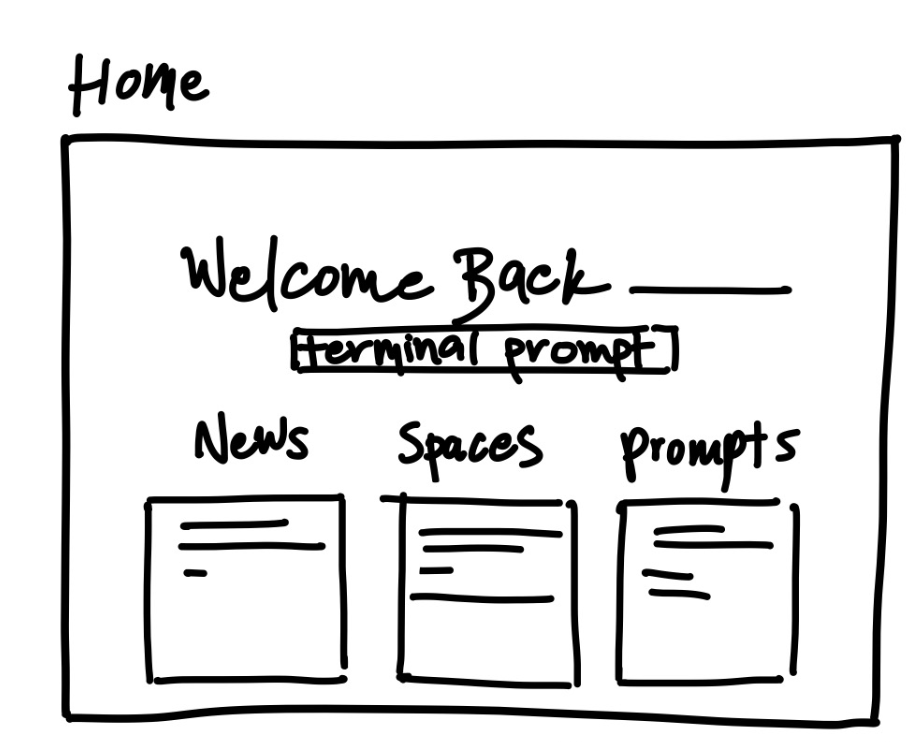 Home
Welcome Back
terminal prompt
News Spaces prompts